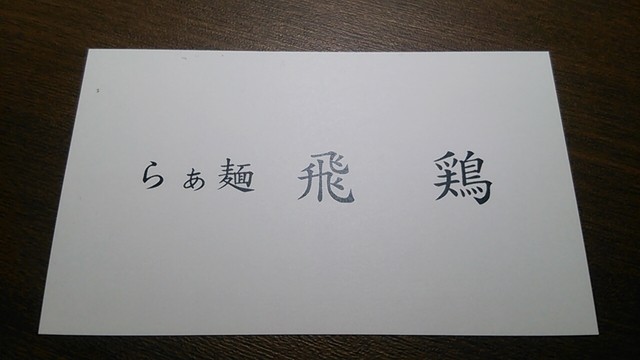 らぁ麺 飛 鶏